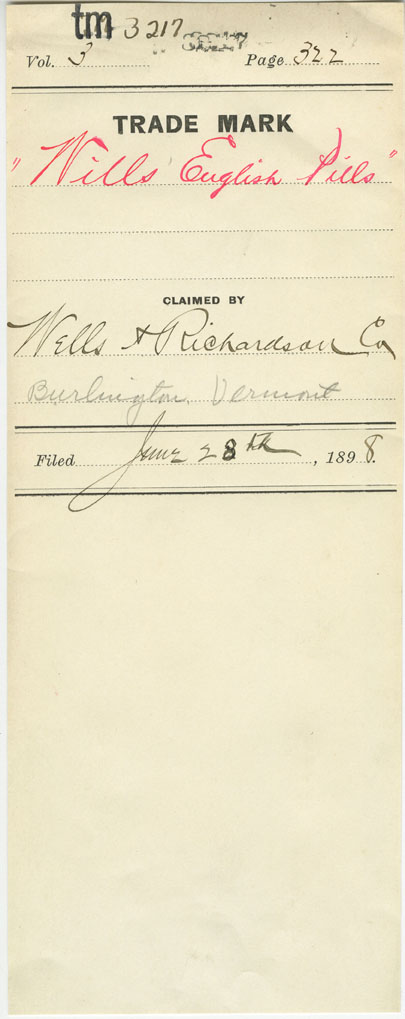 tm 3217
Vol. 3 Page 322
TRADE MARK
"Wills English Pills"
CLAIMED BY
Wells & Richardson Co
Burlington, Vermont
Filed June 28th, 1898.